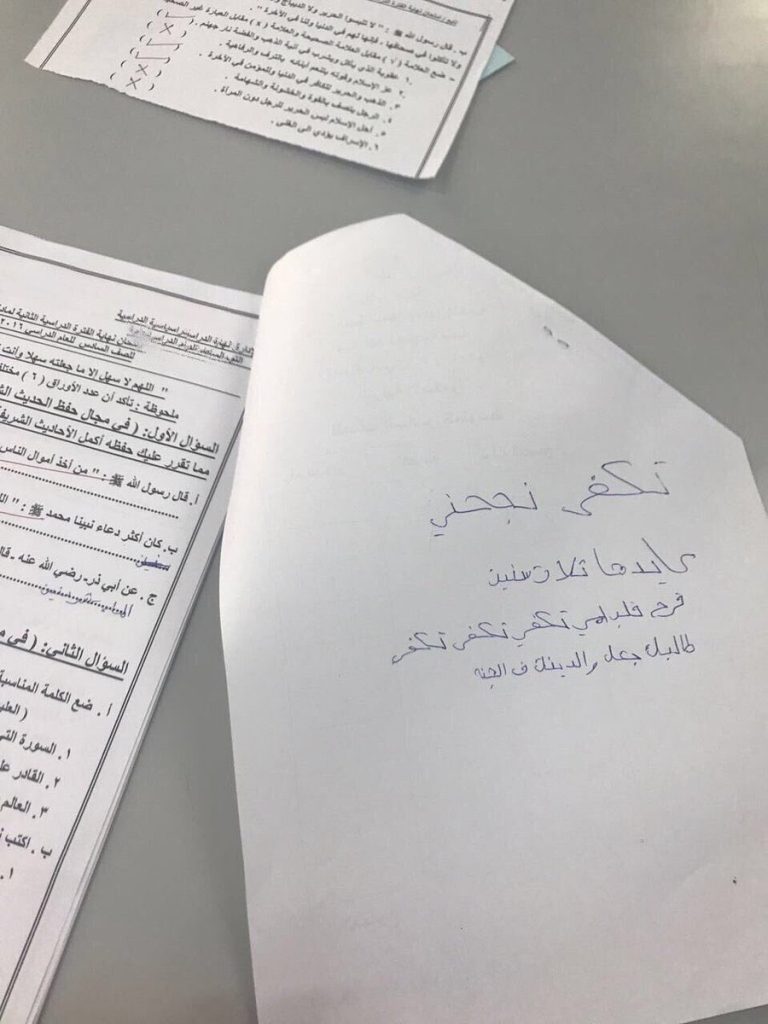 ب. قال رسول الله ﷺ : " لا تلبسوا الحرير ولا الديباج
ولا تأكلوا في صحافها ، فإنها لهم في الدنيا ولنا في الآخرة " .
- ضع العلامة ( √ ) مقابل العلامة الصحيحة والعلامة ( x ) مقابل العبارة غير الصحيحة
١. عقوبة الذي يأكل ويشرب في آنية الذهب والفضة نار جهنم . ( √ )
٢. عز الإسلام وقوته يتنعم أبنائه بالترف والرفاهية . ( × )
٣. الذهب والحرير للكافر في الدنيا وللمؤمن في الآخرة . ( √ )
٤. الرجل يتصف بالقوة والخشونة والشهامة . ( √ )
٥. أحل الإسلام لبس الحرير للرجل دون المرأة . ( × )
٦. الإسراف يؤدي الى الغنى . ( × )
امتحان نهاية الفترة الدراسية الثانية لمادة
للصف السادس للعام الدراسي ٢٠١٦
" اللهم لا سهل إلا ما جعلته سهلا وأنت
ملحوظة : تأكد أن عدد الأوراق ( ٦ ) مختلف
السؤال الأول: ( في مجال حفظ الحديث الش
مما تقرر عليك حفظه أكمل الأحاديث الشريفة
أ. قال رسول الله ﷺ : " من أخذ أموال الناس
ب. كان أكثر دعاء نبينا محمد ﷺ : " الل
ج . عن أبي ذر- رضي الله عنه - قال
السؤال الثاني: ( في م
أ . ضع الكلمة المناسبة
( العلي
١. السورة التي
٢. القادر عل
٣. العالم
ب. اكتب
١.
تكفى نجحني
عايدها ثلاث سنين
فرح قلب امي تكفي تكفى تكفى
طالبك جعل والدينك ف الجنه